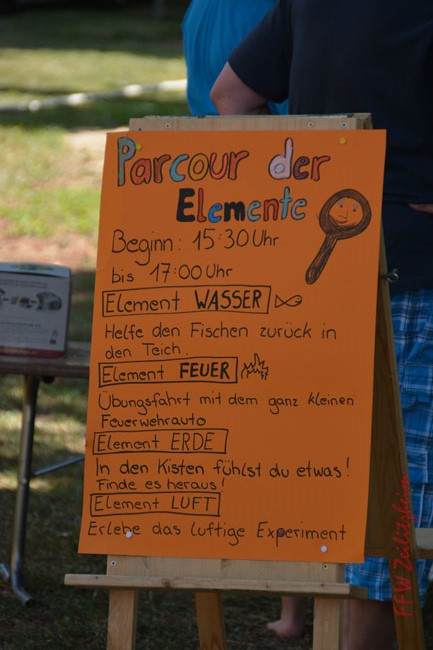 Parcour der
Elemente
Beginn: 15:30 Uhr
bis 17:00 Uhr
Element WASSER
Helfe den Fischen zurück in
den Teich.
Element FEUER
Übungsfahrt mit dem ganz kleinen
Feuerwehrauto
Element ERDE
In den Kisten fühlst du etwas!
Finde es heraus!
Element LUFT
Erlebe das luftige Experiment
FFW Zeilitzheim